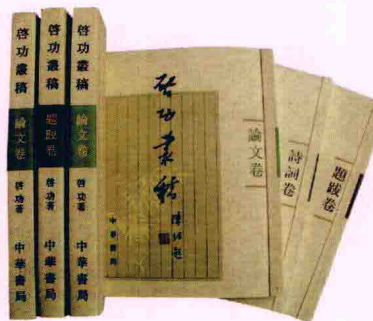 啓功叢稿
論文卷
啓功著
中華書局
啓功叢稿
題跋卷
啓功著
中華書局
啓功叢稿
論文卷
啓功著
中華書局
啓功叢稿
中華書局
論文卷
詩詞卷
題跋卷